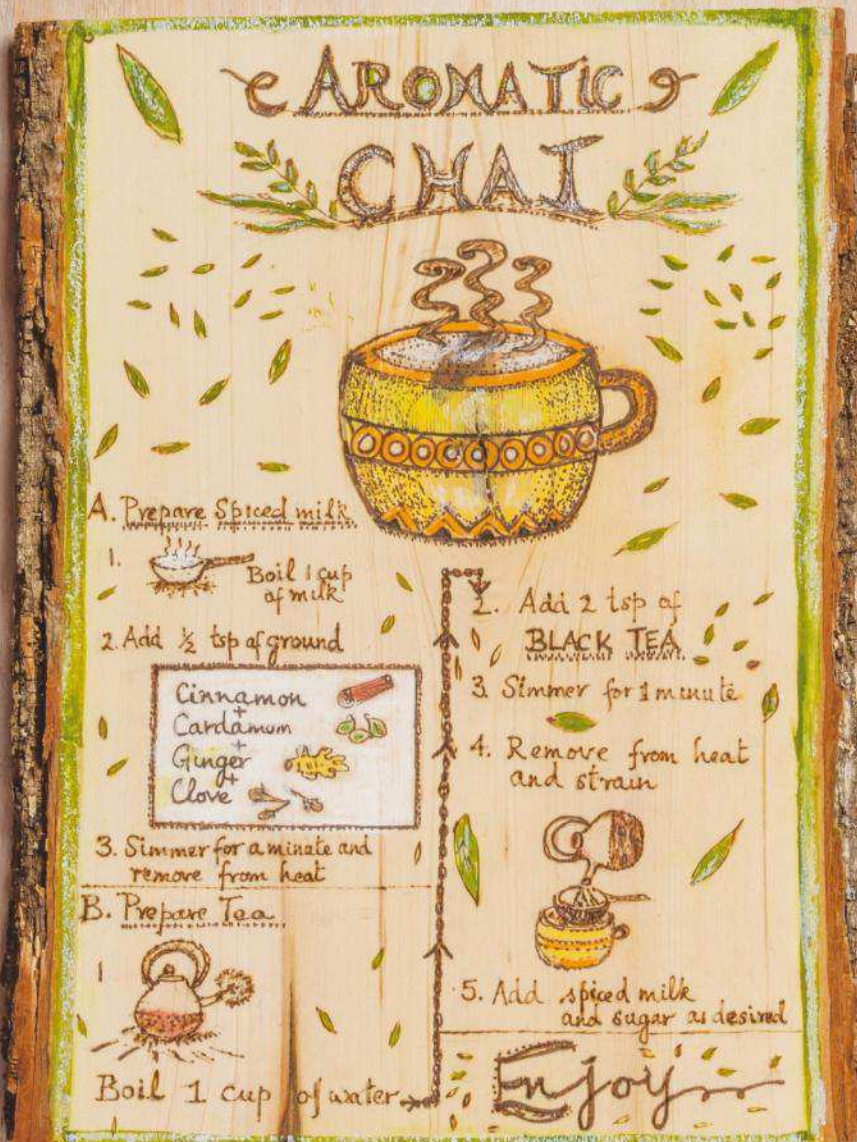 AROMATIC
CHAI
A. Prepare Spiced milk
1.
Boil 1 cup
of milk
2. Add ½ tsp of ground
Cinnamon
+
Cardamom
+
Ginger
+
Clove
3. Simmer for a minute and
remove from heat
B. Prepare Tea
1
Boil 1 cup of water
2. Add 2 tsp of
BLACK TEA
3. Simmer for 1 minute
4. Remove from heat
and strain
5. Add spiced milk
and sugar as desired
Enjoy